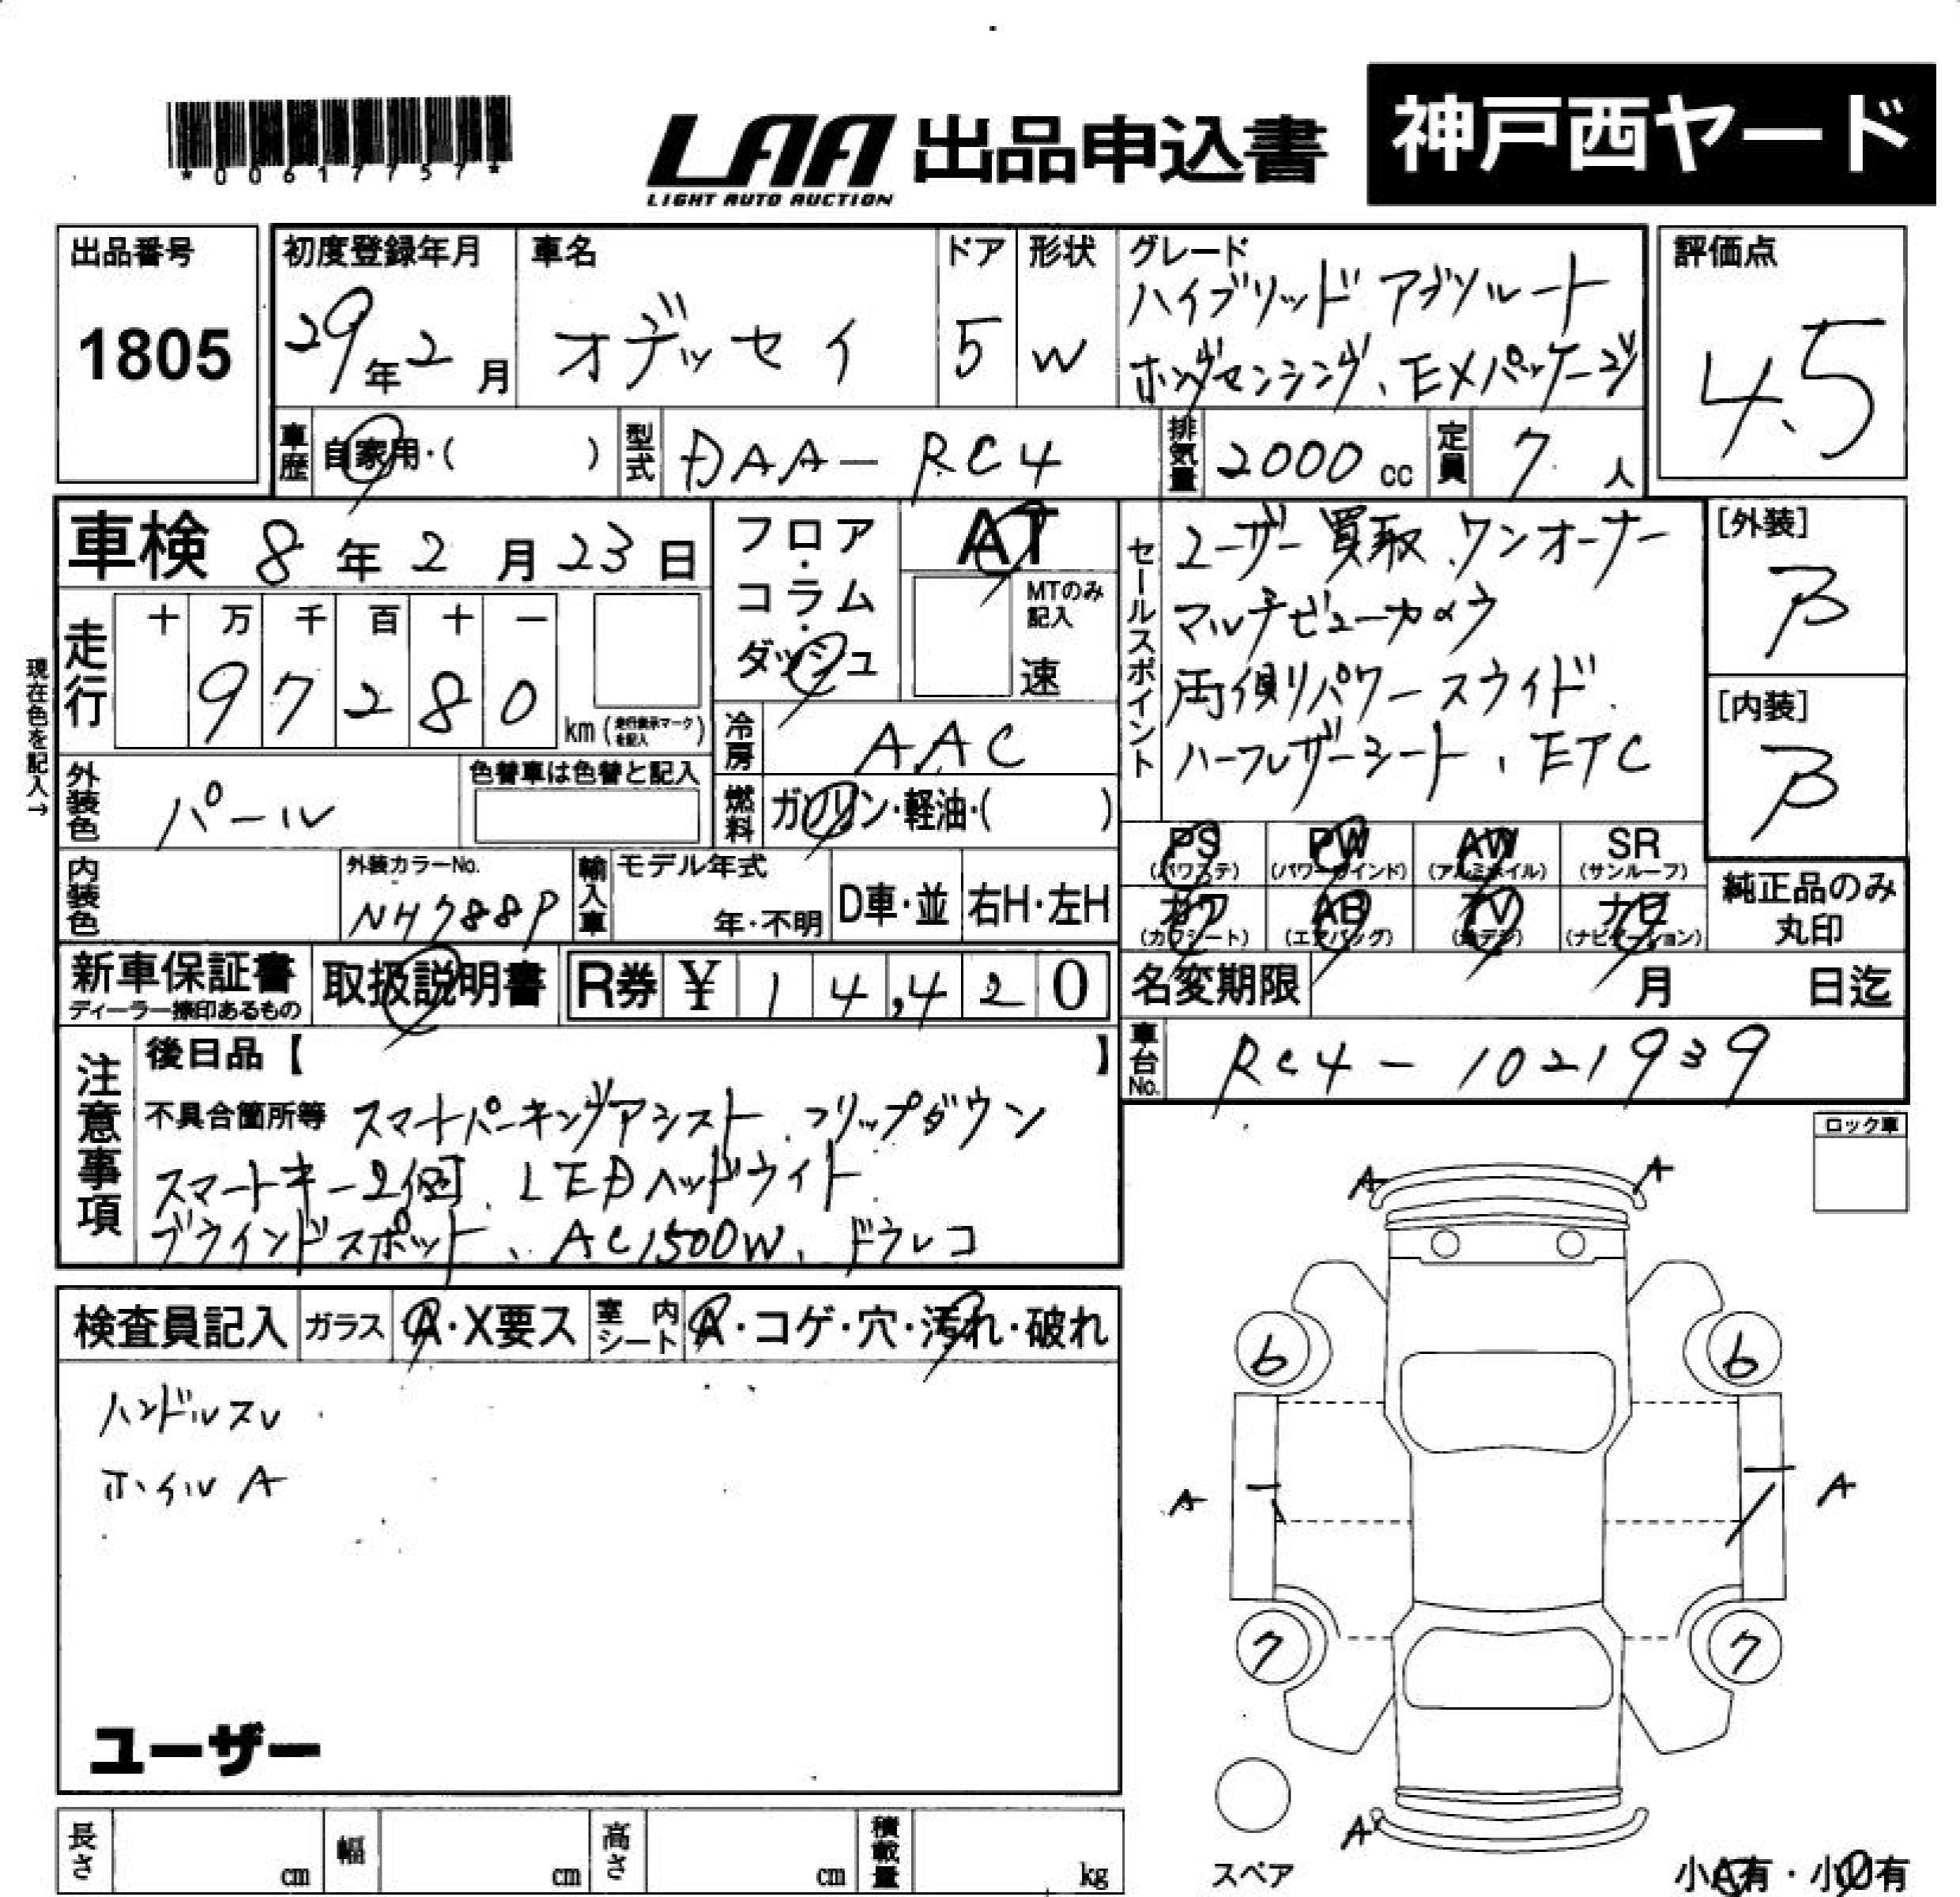 *00617757*
LAA 出品申込書
LIGHT AUTO AUCTION
神戸西ヤード
出品番号
1805
初度登録年月
29年2月
車名
オデッセイ
ドア
5
形状
W
グレード
ハイブリッド アブソルート
ホンダセンシング、EXパッケージ
評価点
4.5
車歴
自家用・( )
型式
DAA-RC4
排気量
2000cc
定員
7人
車検 8年2月23日
走行
十 万 千 百 十 一
9 7 2 8 0
km (走行表示マークを記入)
現在色を記入→
外装色
パール
色替車は色替と記入
フロア・コラム・ダッシュ
AT
MTのみ記入
速
冷房
AAC
燃料
ガソリン・軽油・( )
セールスポイント
ユーザー買取、ワンオーナー
マルチビューカメラ
両側パワースライド、
ハーフレザーシート、ETC
[外装]
B
[内装]
B
内装色
外装カラーNo.
NH788P
輸入車
モデル年式
年・不明
D車・並
右H・左H
PS
(パワステ)
PW
(パワーウインド)
AW
(アルミホイル)
SR
(サンルーフ)
カワ
(カワシート)
AB
(エアバッグ)
TV
(地デジ)
ナビ
(ナビゲーション)
純正品のみ
丸印
新車保証書
ディーラー捺印あるもの
取扱説明書
R券 ¥ 14,420
名変期限 月 日迄
車台No.
RC4-1021939
注意事項
後日品【 】
不具合箇所等 スマートパーキングアシスト、フリップダウン
スマートキー2個、LEDヘッドライト
ブラインドスポット、AC1500W、ドラレコ
ロック車
検査員記入
ガラス
A・X要ス
室内シート
A・コゲ・穴・汚れ・破れ
ハンドルスレ
ホイルA
ユーザー
A A
6 6
A A
7 7
A
スペア
小A有・小U有
長さ cm
幅 cm
高さ cm
積載量 kg